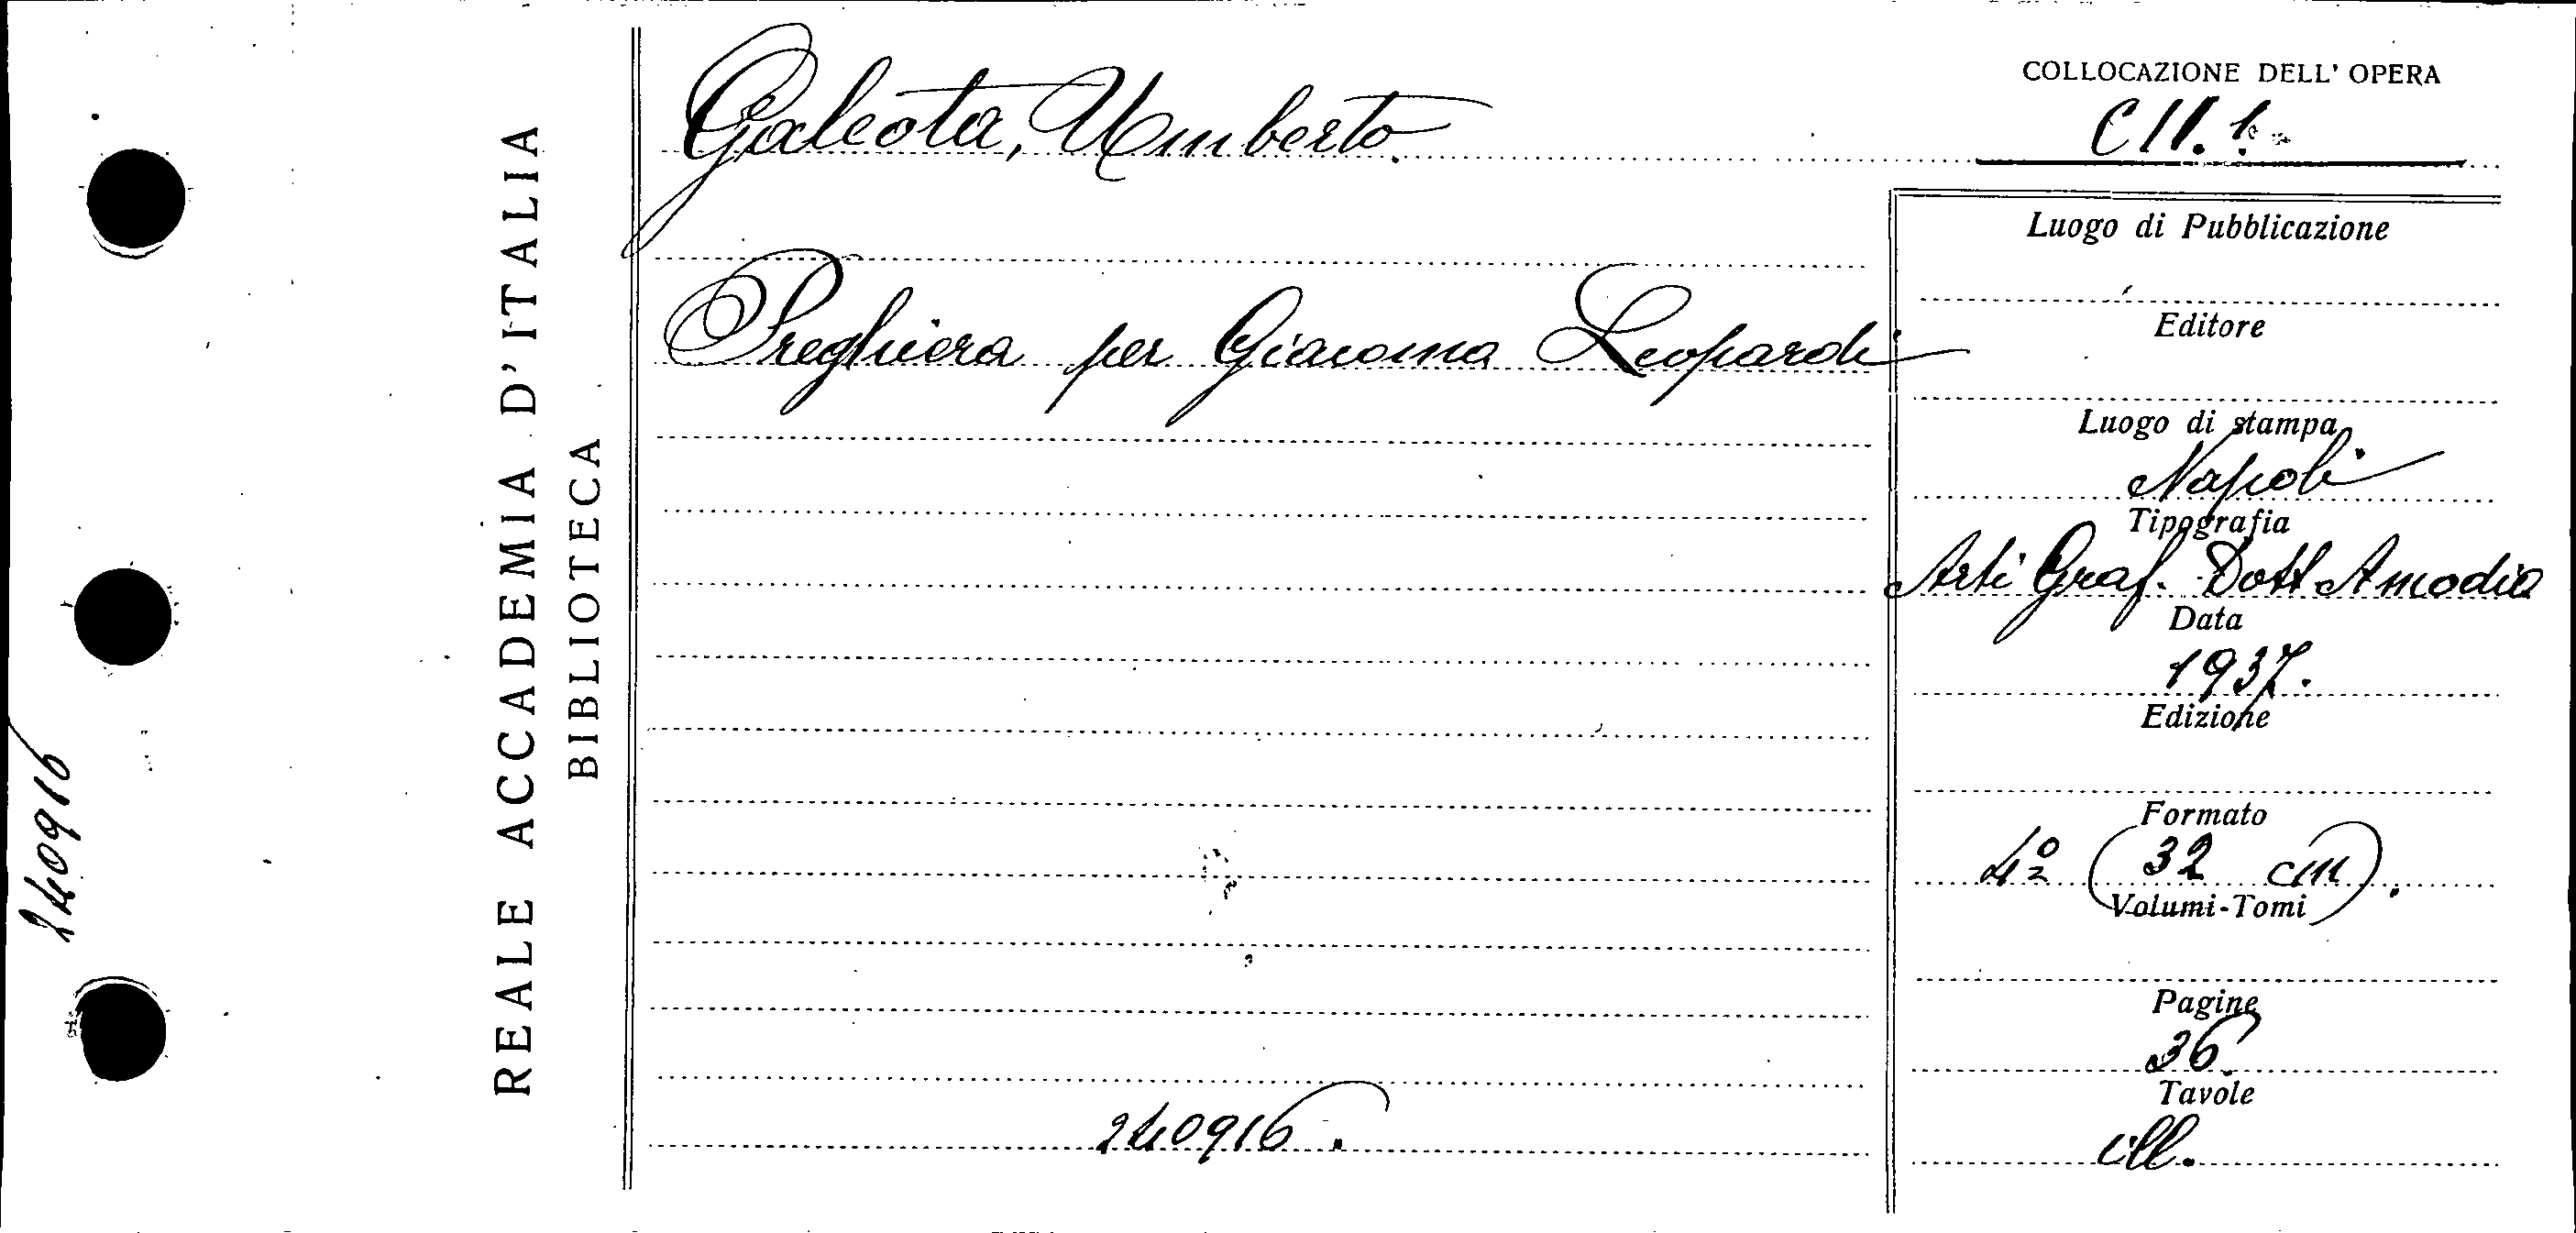 240916
REALE ACCADEMIA D'ITALIA
BIBLIOTECA
Galeota, Umberto.
Preghiera per Giacomo Leopardi
240916.
COLLOCAZIONE DELL' OPERA
Luogo di Pubblicazione
Editore
Luogo di stampa
Napoli
Tipografia
Arti Graf. Dott Amodio
Data
1937.
Edizione
Formato
4º (32 cm).
Volumi-Tomi
Pagine
36
Tavole
ill.